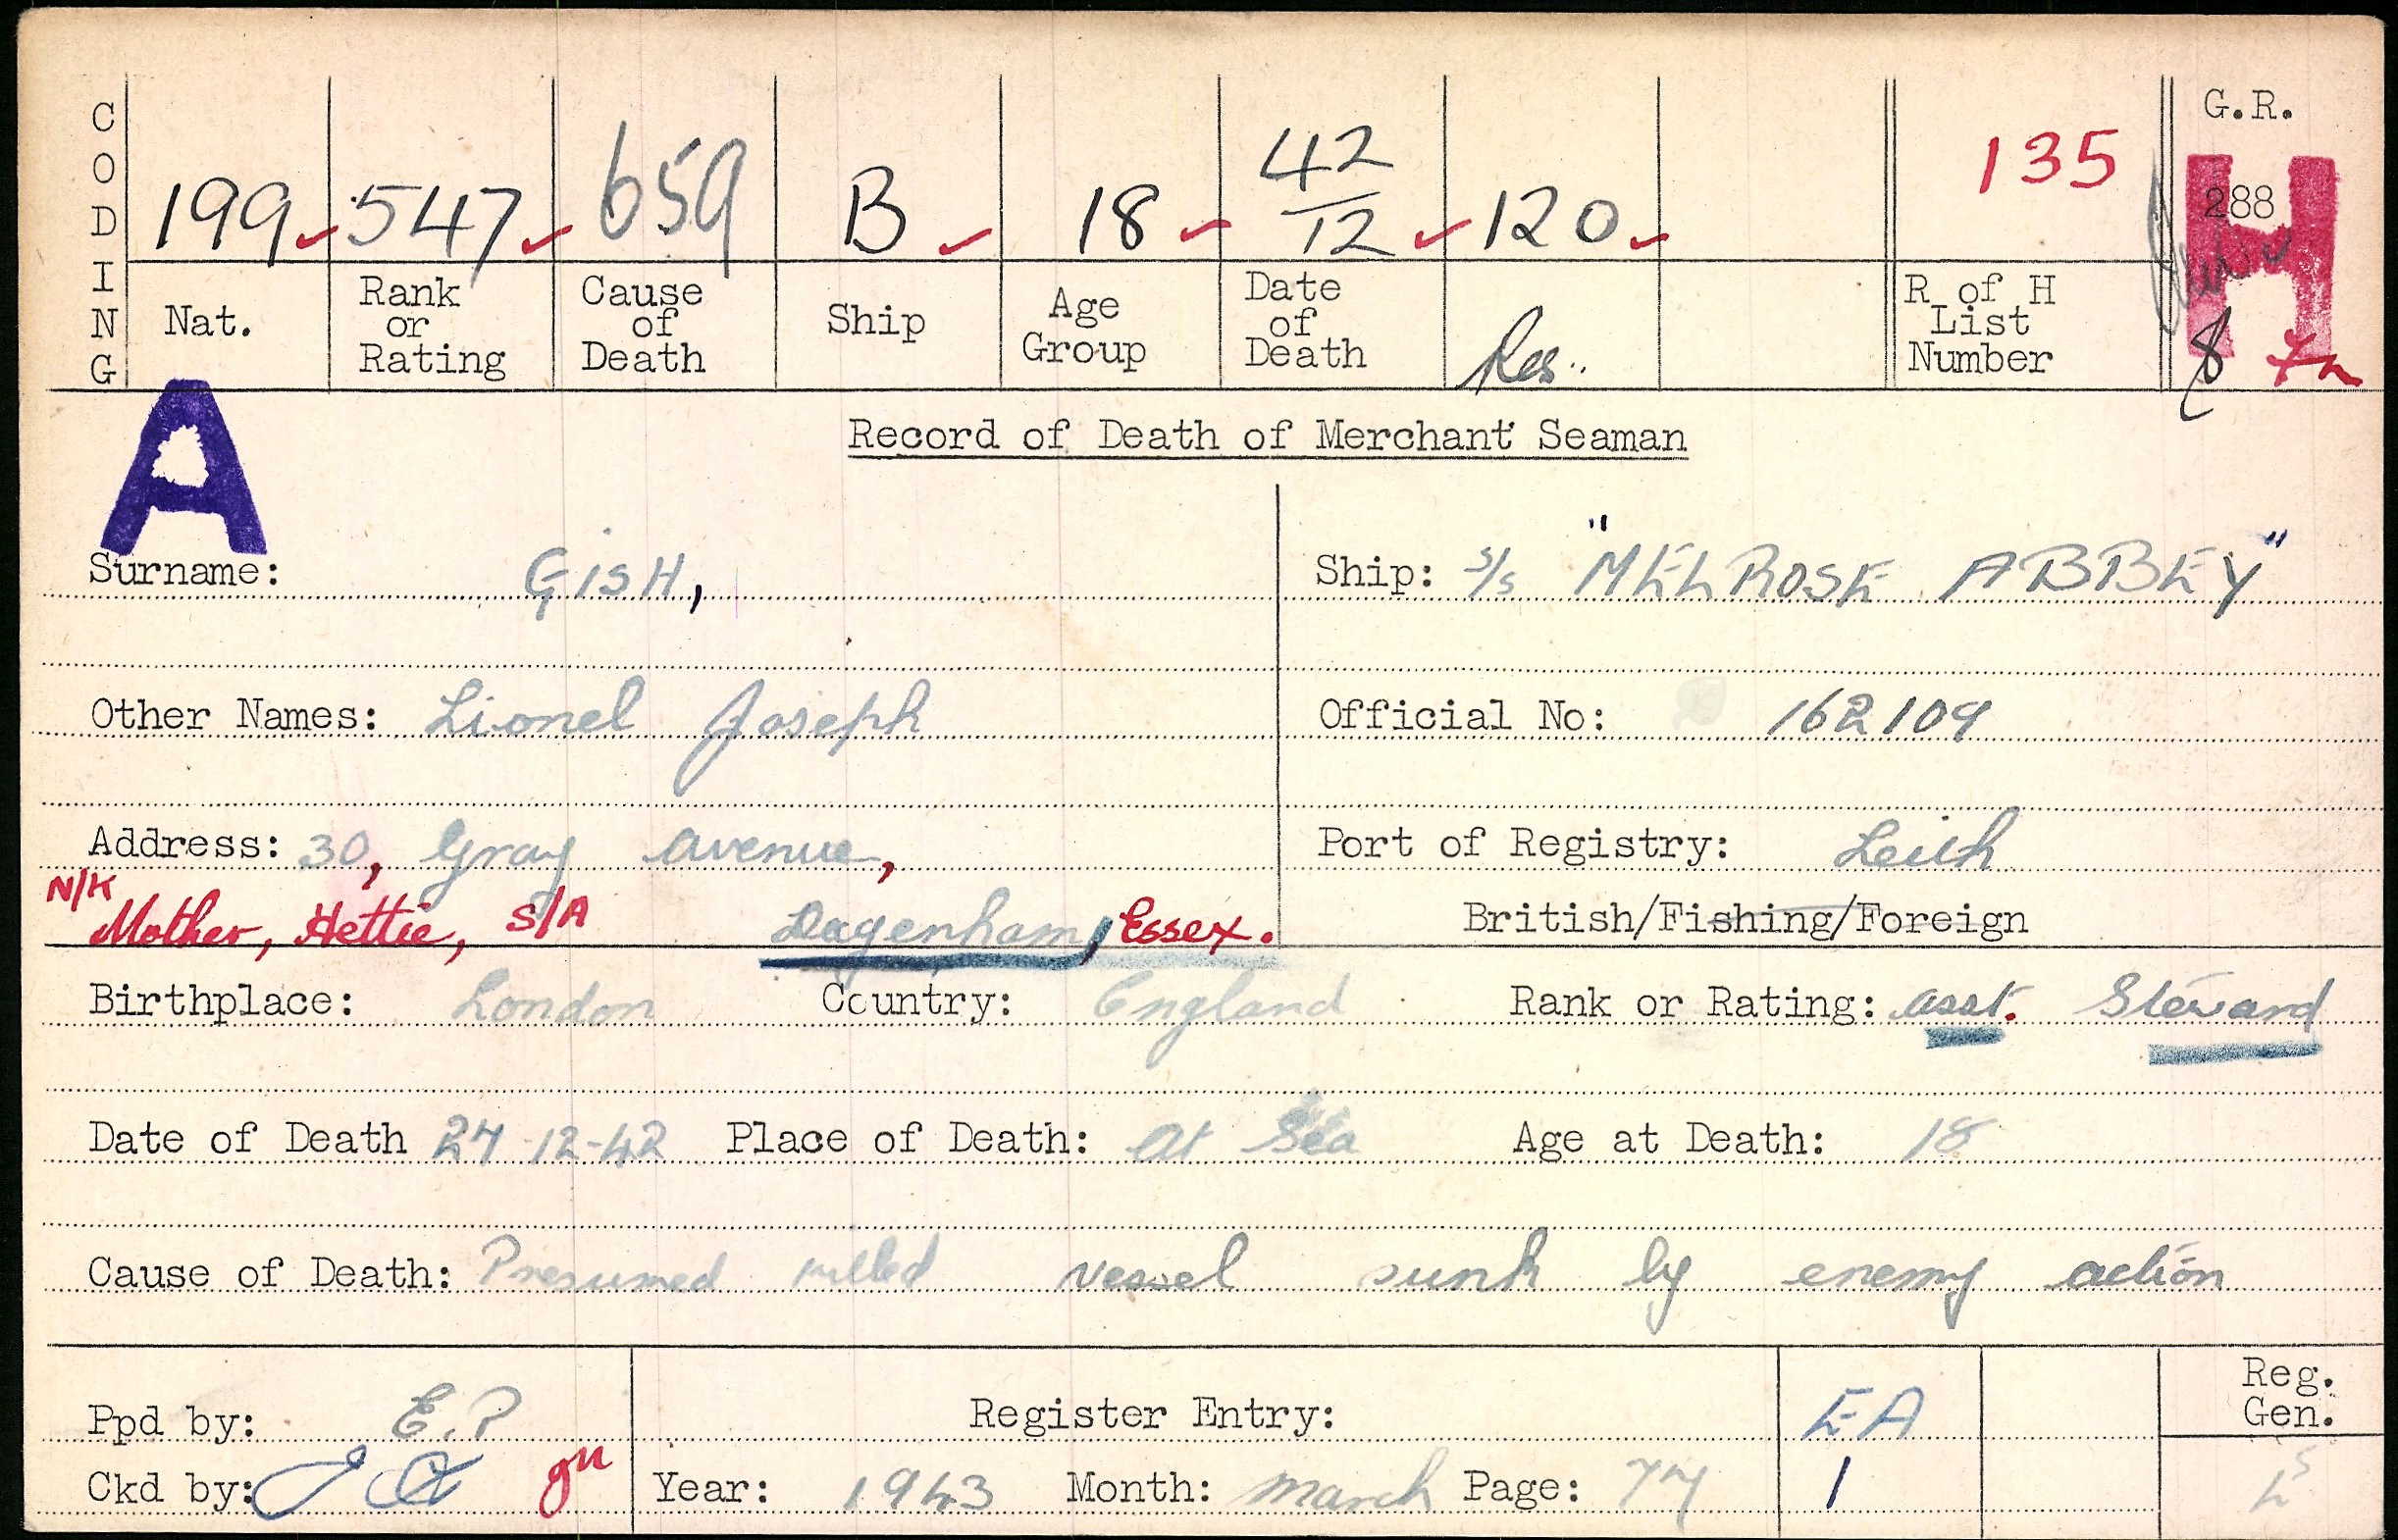 CODING
199 547 659 B 18 42/12 120 135 G.R. 288 H
Nat. Rank or Rating Cause of Death Ship Age Group Date of Death Res. R of H List Number 8
A
Record of Death of Merchant Seaman
Surname: GISH, Ship: s/s "MELROSE ABBEY"
Other Names: Lionel Joseph Official No: 162109
Address: 30, Gray Avenue, Port of Registry: Leith
N/K Mother, Hettie, S/A Dagenham, Essex. British/Fishing/Foreign
Birthplace: London Country: England Rank or Rating: asst. Steward
Date of Death 27-12-42 Place of Death: At Sea Age at Death: 18
Cause of Death: Presumed killed vessel sunk by enemy action
Ppd by: E.P Register Entry: EA Reg. Gen.
Ckd by: Year: 1943 Month: March Page: 77 1